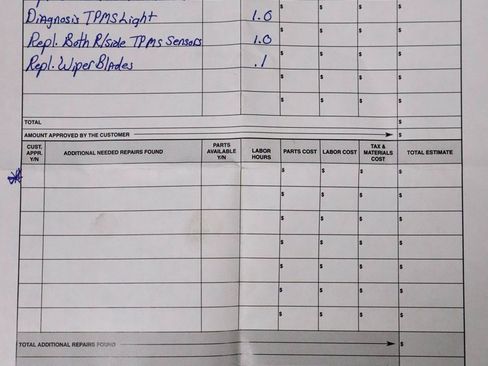 Diagnosis TPMS Light 1.0
Repl. Both R/side TPMS Sensors 1.0
Repl. Wiper Blades .1
TOTAL $
AMOUNT APPROVED BY THE CUSTOMER $
CUST. APPR. Y/N ADDITIONAL NEEDED REPAIRS FOUND PARTS AVAILABLE Y/N LABOR HOURS PARTS COST LABOR COST TAX & MATERIALS COST TOTAL ESTIMATE
$ $ $ $
$ $ $ $
$ $ $ $
$ $ $ $
$ $ $ $
$ $ $ $
$ $ $ $
TOTAL ADDITIONAL REPAIRS FOUND $